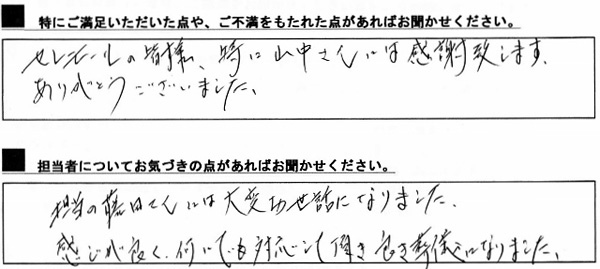 特にご満足いただいた点や、ご不満をもたれた点があればお聞かせください。
セレモールの皆様、特に山中さんには感謝致します。
ありがとうございました。
担当者についてお気づきの点があればお聞かせください。
担当の藤田さんには大変お世話になりました。
感じが良く、何にでも対応して頂き良き葬儀になりました。